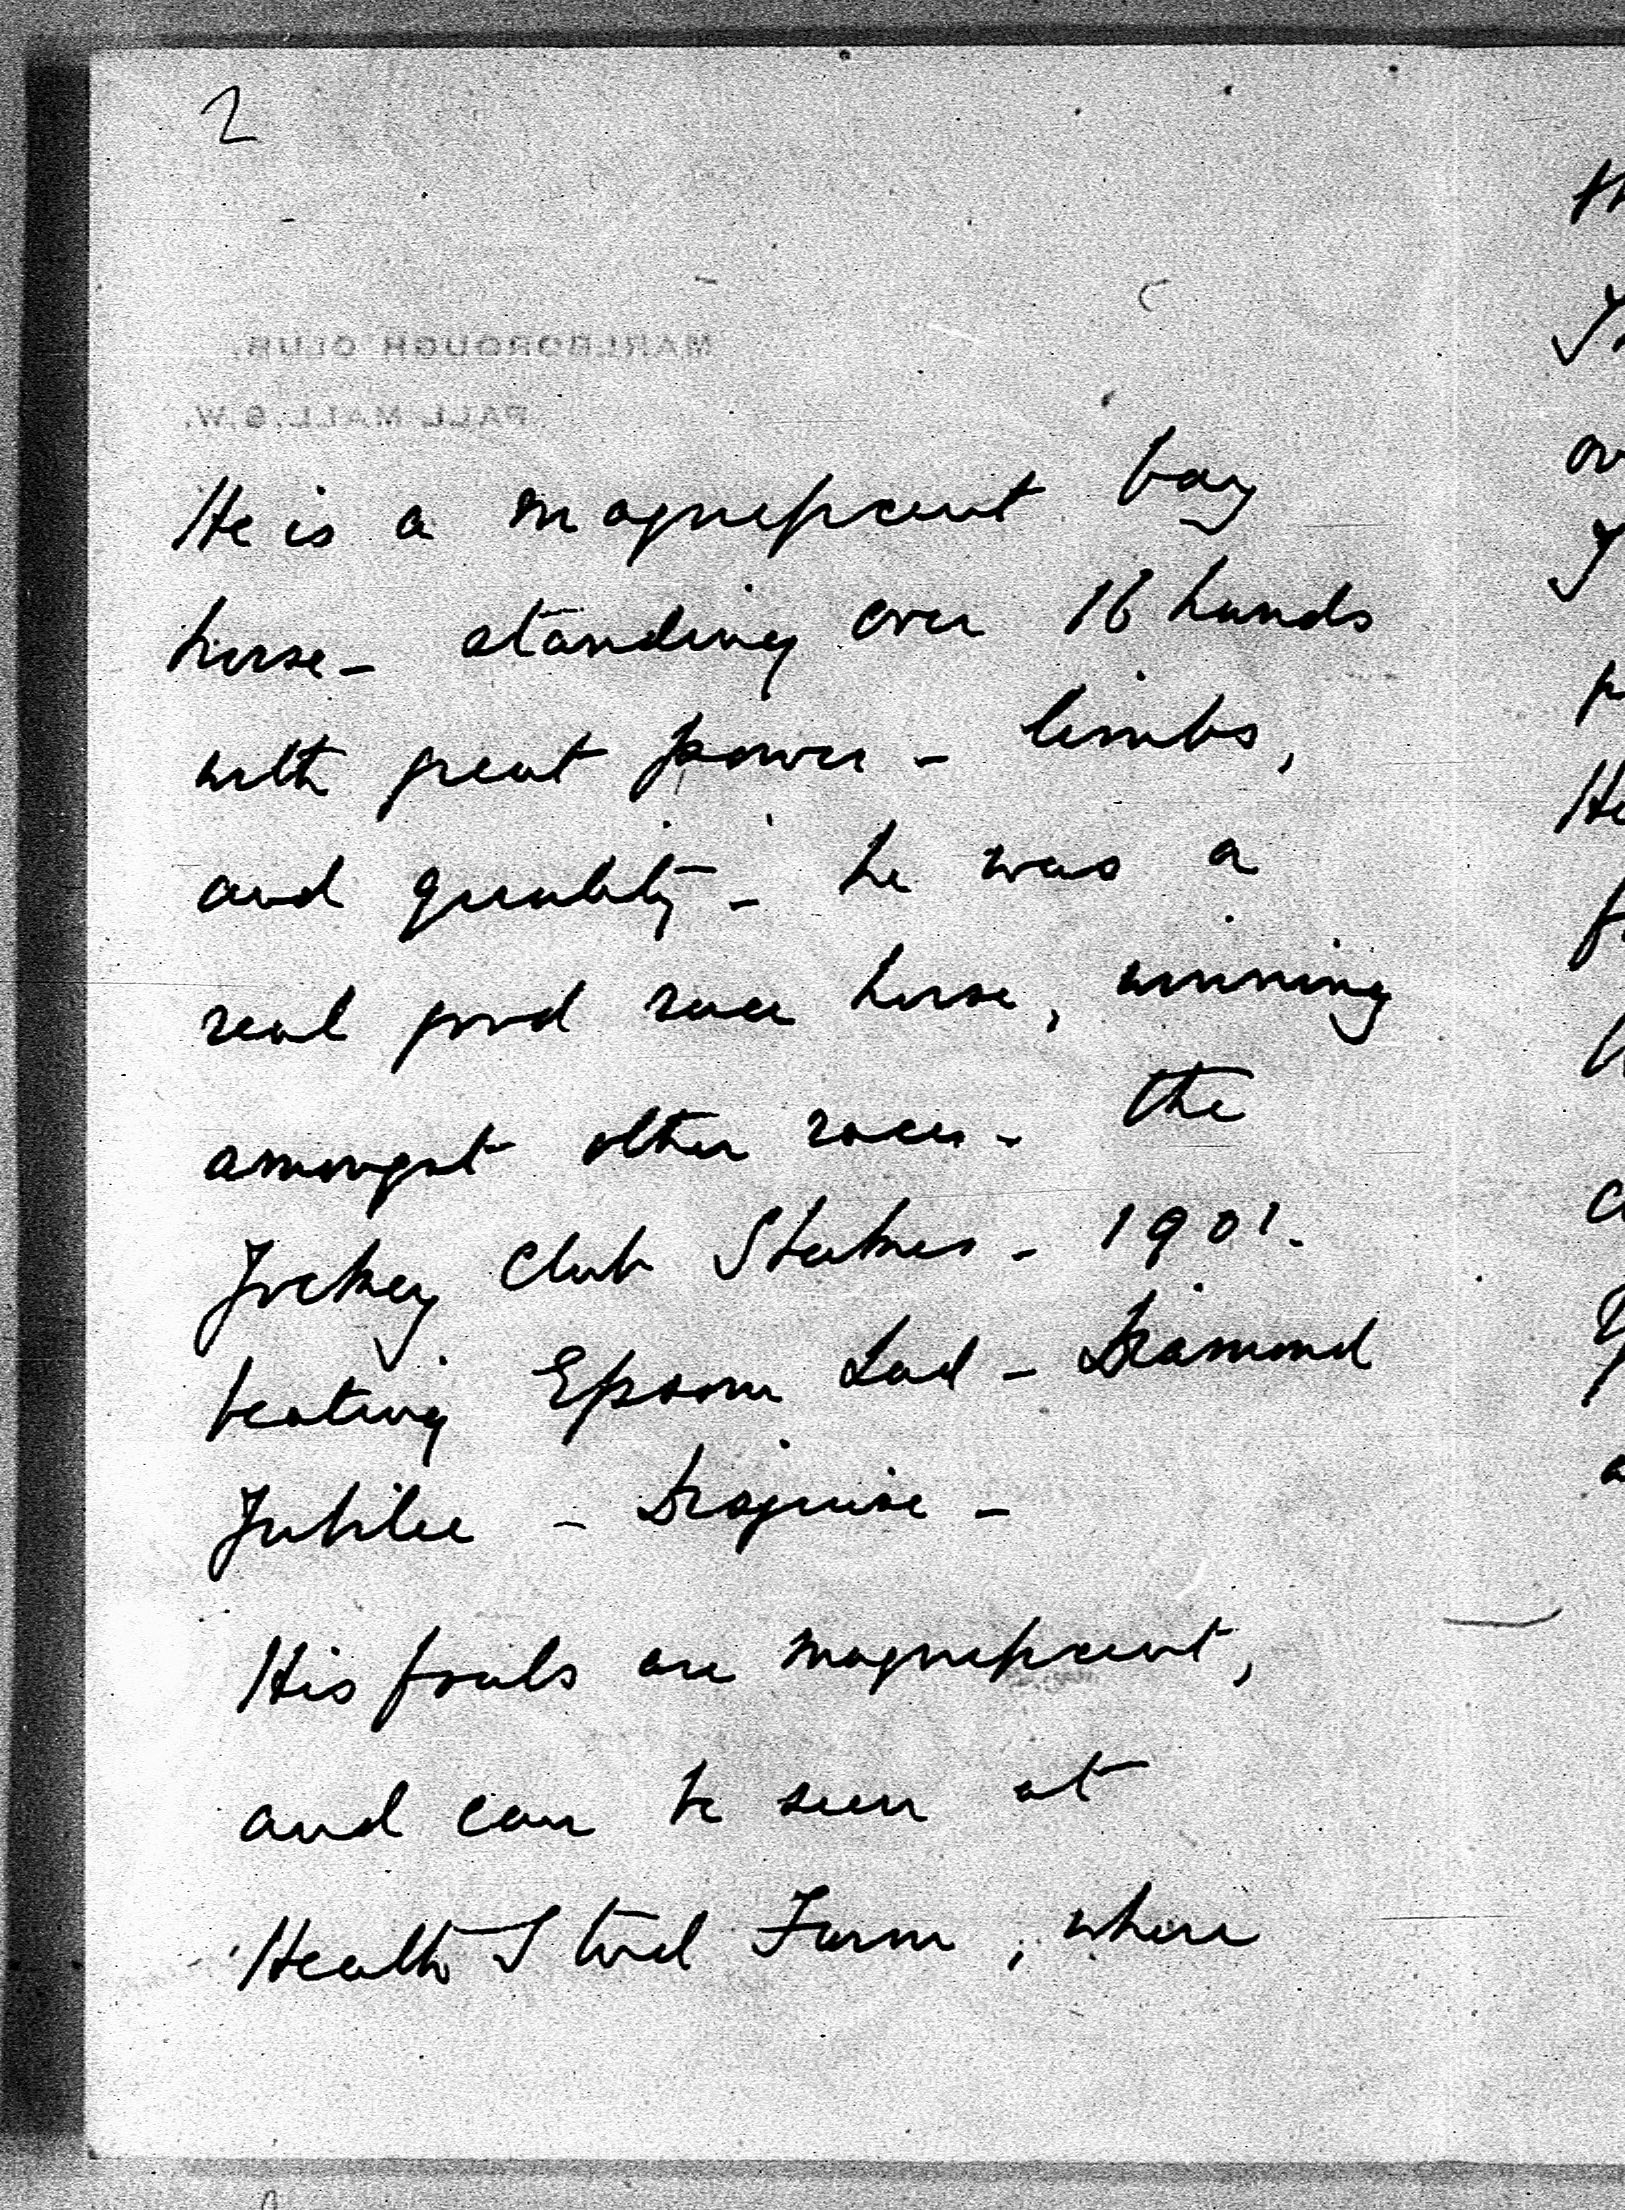 2
MARLBOROUGH CLUB.
PALL MALL. S.W.
He is a magnificent bay
horse - standing over 16 hands
with great power - limbs,
and quality - he was a
real good race horse, winning
amongst other races - the
Jockey Club Stakes - 1901.
beating Epsom Lad - Diamond
Jubilee - Disguise -
His foals are magnificent,
and can be seen at
Heath Stud Farm, where